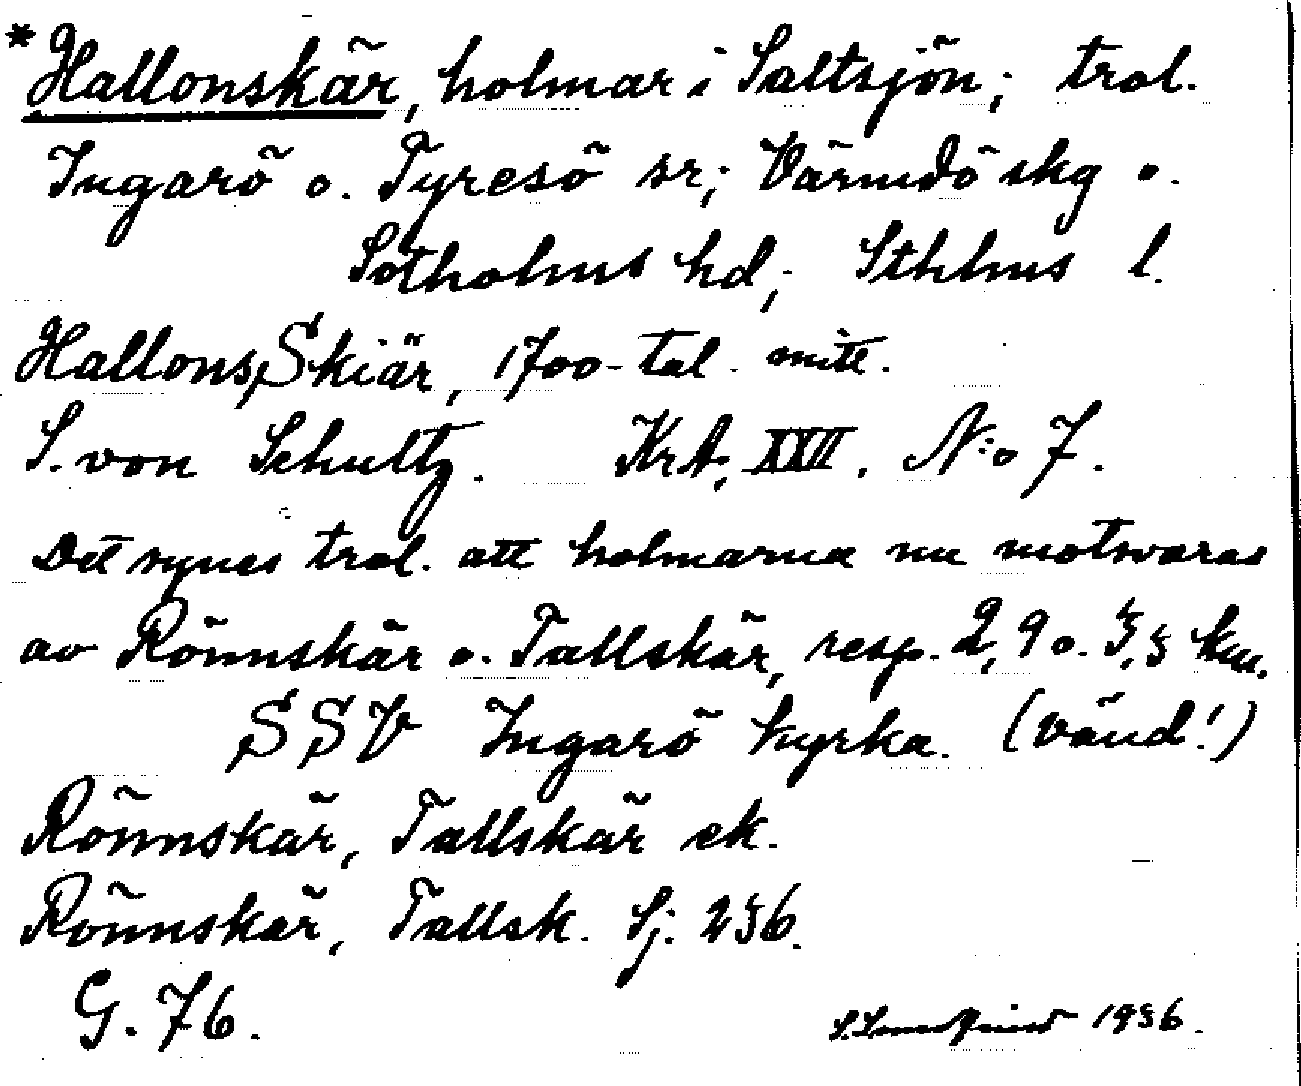 *Hallonskär, holmar i Saltsjön; trol.
Ingarö o. Tyresö sr; Värmdö skg o.
Sotholms hd; Sthlms l.
Hallons Skiär, 1700-tal mitt.
S. von Schultz. Krt. XXVI. N:o 7.
Det synes trol. att holmarna nu motsvaras
av Rönnskär o. Tallskär, resp. 2,9 o. 3,3 km.
SSV Ingarö kyrka. (vänd!)
Rönnskär, Tallskär ek.
Rönnskär, Tallsk. Sj. 236.
G. 76.
1936.